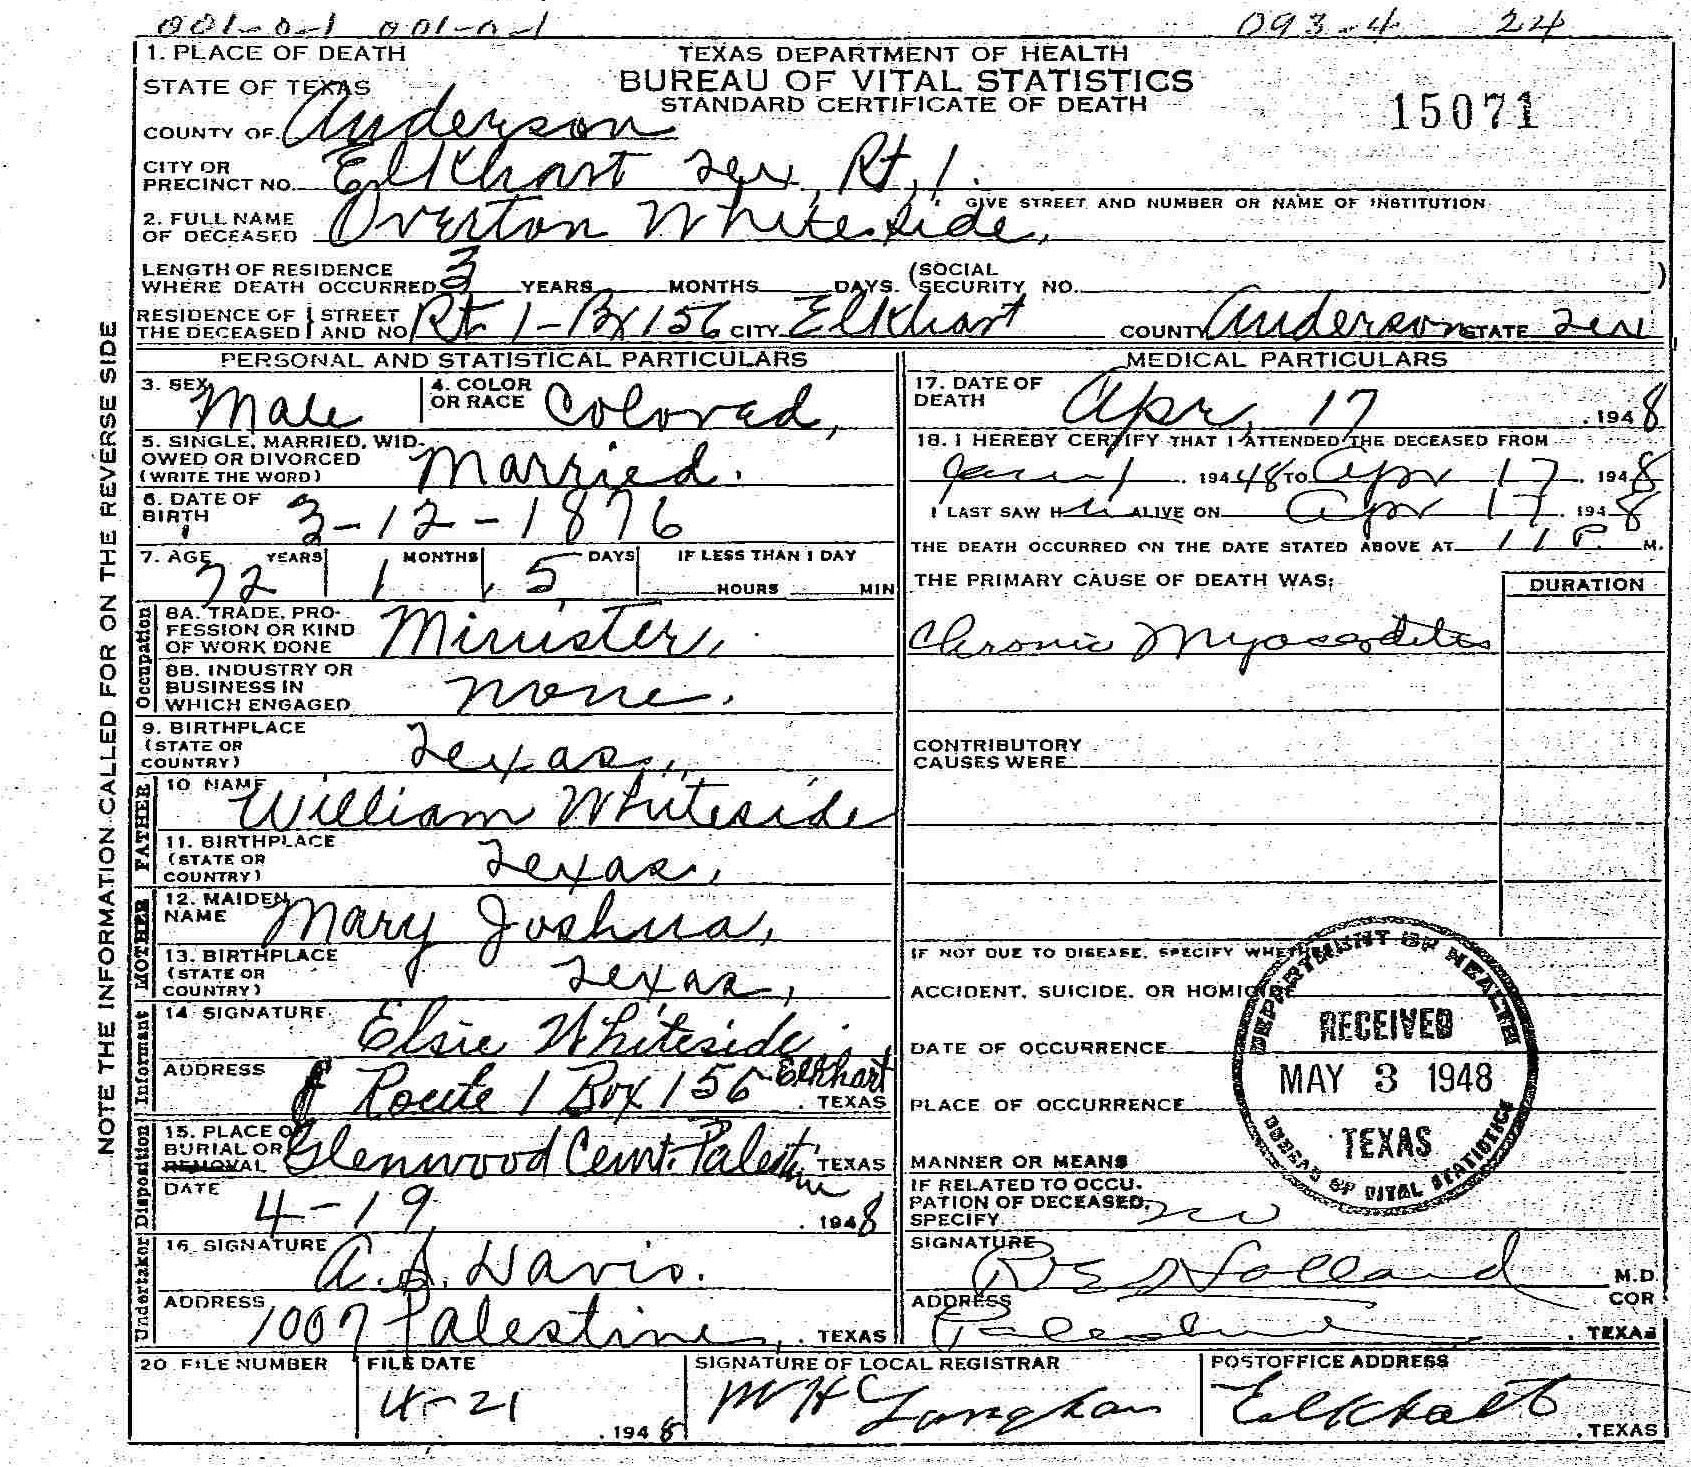 001-0-1 001-0-1 093-4 24
1. PLACE OF DEATH
TEXAS DEPARTMENT OF HEALTH
STATE OF TEXAS
BUREAU OF VITAL STATISTICS
STANDARD CERTIFICATE OF DEATH
15071
COUNTY OF Anderson
CITY OR PRECINCT NO. Elkhart Tex, Rt, 1.
GIVE STREET AND NUMBER OR NAME OF INSTITUTION
2. FULL NAME OF DECEASED Overton Whiteside,
LENGTH OF RESIDENCE WHERE DEATH OCCURRED 3 YEARS MONTHS DAYS. (SOCIAL SECURITY NO. )
RESIDENCE OF THE DECEASED STREET AND NO Rt. 1-Bx 156 CITY Elkhart COUNTY Anderson STATE Tex
PERSONAL AND STATISTICAL PARTICULARS
3. SEX Male
4. COLOR OR RACE Colored,
5. SINGLE, MARRIED, WIDOWED OR DIVORCED (WRITE THE WORD) Married.
6. DATE OF BIRTH 3-12-1876
7. AGE 72 YEARS 1 MONTHS 5 DAYS IF LESS THAN 1 DAY HOURS MIN
Occupation
8A. TRADE, PROFESSION OR KIND OF WORK DONE Minister,
8B. INDUSTRY OR BUSINESS IN WHICH ENGAGED none.
9. BIRTHPLACE (STATE OR COUNTRY) Texas,
FATHER
10 NAME William Whiteside
11. BIRTHPLACE (STATE OR COUNTRY) Texas,
MOTHER
12. MAIDEN NAME Mary Joshua,
13. BIRTHPLACE (STATE OR COUNTRY) Texas,
Informant
14 SIGNATURE Elsie Whiteside
ADDRESS Route 1 Box 156 Elkhart TEXAS
Disposition
15. PLACE OF BURIAL OR REMOVAL Glenwood Cemt. Palestine TEXAS
DATE 4-19 1948
Undertaker
16. SIGNATURE A. S. Davis.
ADDRESS 1007 Palestine, TEXAS
MEDICAL PARTICULARS
17. DATE OF DEATH Apr, 17 1948
18. I HEREBY CERTIFY THAT I ATTENDED THE DECEASED FROM
Jan 1 1948 TO Apr 17 1948
I LAST SAW HIM ALIVE ON Apr 17 1948
THE DEATH OCCURRED ON THE DATE STATED ABOVE AT 11 P. M.
THE PRIMARY CAUSE OF DEATH WAS: DURATION
Chronic Myocarditis
CONTRIBUTORY CAUSES WERE
IF NOT DUE TO DISEASE, SPECIFY WHETHER
ACCIDENT, SUICIDE, OR HOMICIDE
DATE OF OCCURRENCE
PLACE OF OCCURRENCE
MANNER OR MEANS
IF RELATED TO OCCUPATION OF DECEASED, SPECIFY no
DEPARTMENT OF HEALTH
RECEIVED
MAY 3 1948
TEXAS
BUREAU OF VITAL STATISTICS
SIGNATURE Holland M.D. COR
ADDRESS Palestine TEXAS
20 FILE NUMBER
FILE DATE 4-21 1948
SIGNATURE OF LOCAL REGISTRAR
POSTOFFICE ADDRESS Elkhart TEXAS
NOTE THE INFORMATION CALLED FOR ON THE REVERSE SIDE